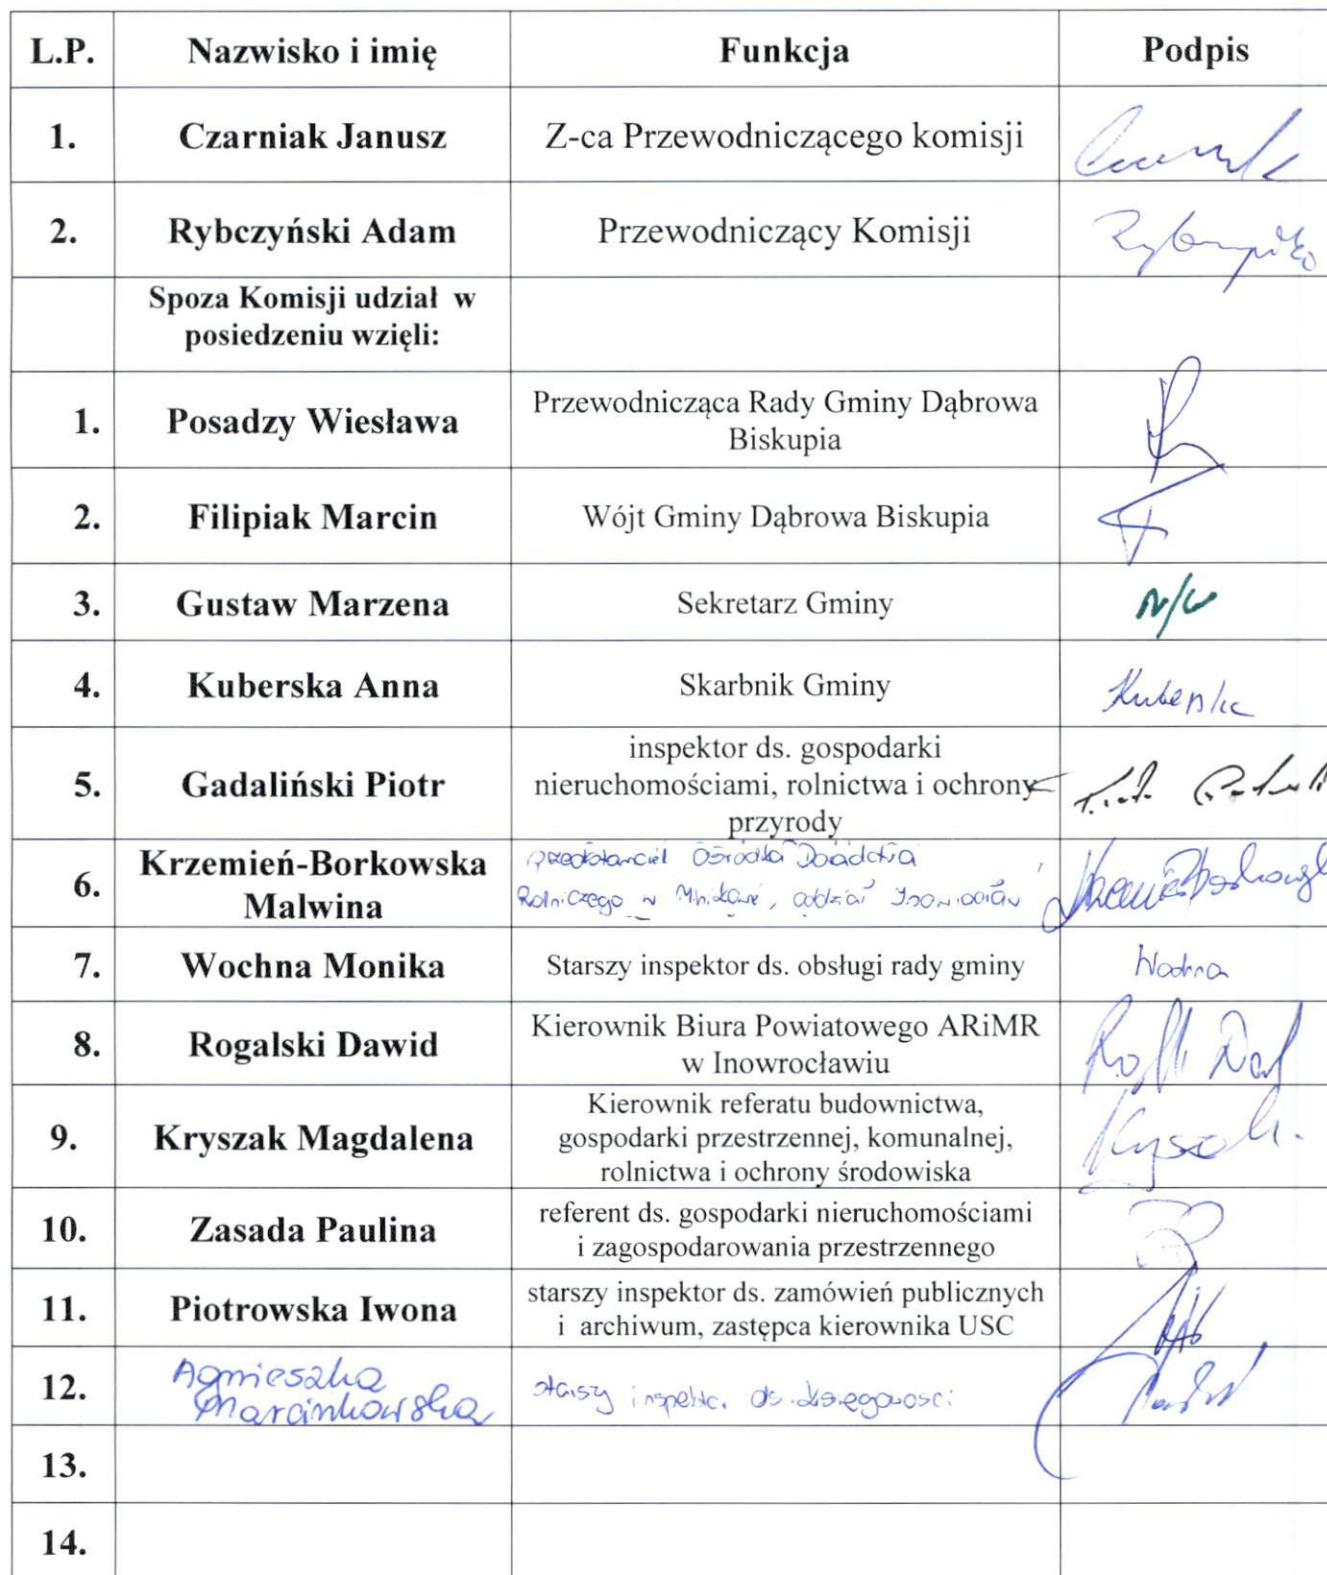 L.P. Nazwisko i imię Funkcja Podpis
1. Czarniak Janusz Z-ca Przewodniczącego komisji
2. Rybczyński Adam Przewodniczący Komisji
Spoza Komisji udział w
posiedzeniu wzięli:
1. Posadzy Wiesława Przewodnicząca Rady Gminy Dąbrowa
Biskupia
2. Filipiak Marcin Wójt Gminy Dąbrowa Biskupia
3. Gustaw Marzena Sekretarz Gminy N/U
4. Kuberska Anna Skarbnik Gminy Kuberska
5. Gadaliński Piotr inspektor ds. gospodarki
nieruchomościami, rolnictwa i ochrony
przyrody
6. Krzemień-Borkowska
Malwina
przedstawiciel Ośrodka Doradztwa
Rolniczego w Minikowie, oddział Inowrocław
7. Wochna Monika Starszy inspektor ds. obsługi rady gminy Wochna
8. Rogalski Dawid Kierownik Biura Powiatowego ARiMR
w Inowrocławiu
9. Kryszak Magdalena Kierownik referatu budownictwa,
gospodarki przestrzennej, komunalnej,
rolnictwa i ochrony środowiska
10. Zasada Paulina referent ds. gospodarki nieruchomościami
i zagospodarowania przestrzennego
11. Piotrowska Iwona starszy inspektor ds. zamówień publicznych
i archiwum, zastępca kierownika USC
12. Agnieszka
Marcinkowska
starszy inspektor ds. księgowości
13.
14.